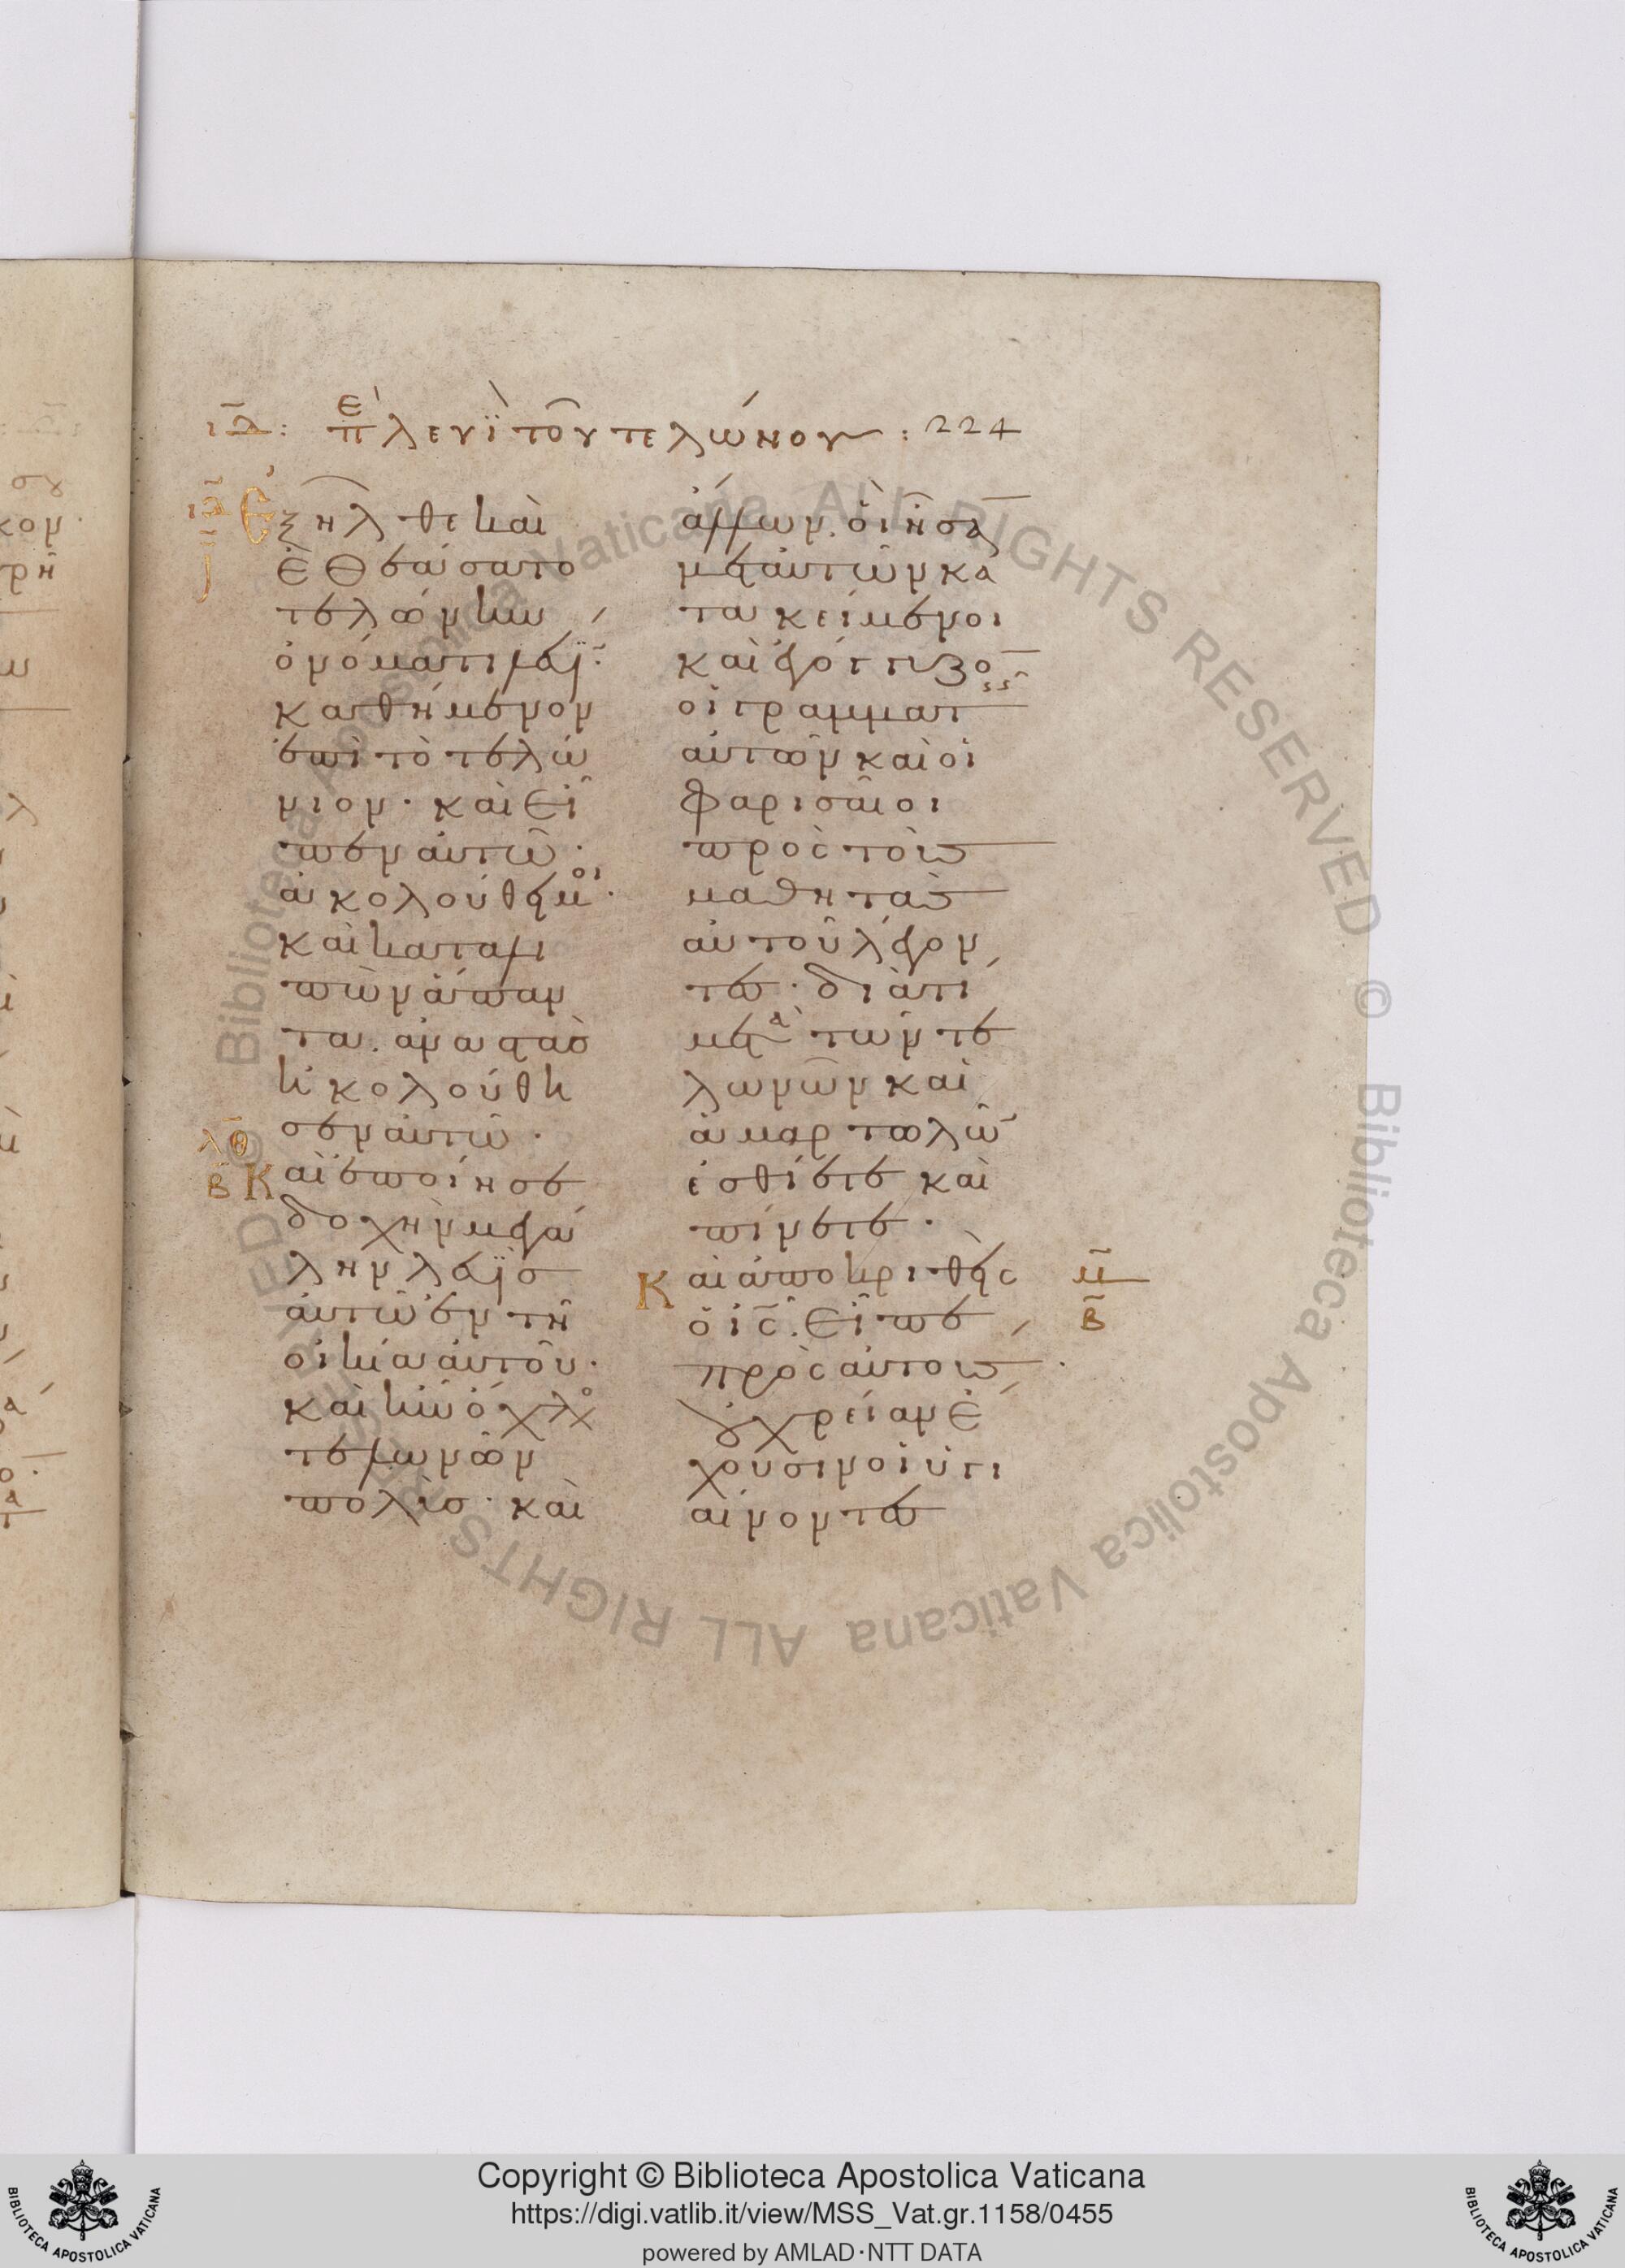 ιδ: πε λευὶ τοῦ τελώνου: 224
ιδ
Ἐξῆλθε καὶ
ἐθεάσατο
τελώνην
ὀνόματι λευΐ·
καθήμενον
ἐπὶ τὸ τελώ
νιον· καὶ εἶ
πεν αὐτῶ·
ἀκολούθει μοι·
καὶ καταλι
πὼν ἅπαν
τα· ἀναστὰσ
ἠκολούθη
σεν αὐτῶ·
λθ
β
Καὶ ἐποίησε
δοχὴν μεγά
λην λευῒσ
αὐτῶ ἐν τῆ
οἰκία αὐτοῦ·
καὶ ἦν ὄχλος
τελωνῶν
πολὺσ· καὶ
ἄλλων· οἳ ἦσα
μετ αὐτῶν κα
τακείμενοι
καὶ ἐγόγγυζο
οἱ γραμματεῖς
αὐτῶν καὶ οἱ
φαρισαῖοι
πρὸς τοὺσ
μαθητὰσ
αὐτοῦ λέγον
τεσ· διατί
μετὰ τῶν τε
λωνῶν καὶ
ἁμαρτωλῶ
ἐσθίετε καὶ
πίνετε·
Καὶ ἀποκριθεὶς
ὁ ις· εἶπε
πρὸς αὐτούσ·
οὐ χρείαν ἔ
χουσιν οἱ ὑγι
αίνοντεσ
μ
β
Copyright © Biblioteca Apostolica Vaticana
https://digi.vatlib.it/view/MSS_Vat.gr.1158/0455
powered by AMLAD·NTT DATA
BIBLIOTECA APOSTOLICA VATICANA
BIBLIOTECA APOSTOLICA VATICANA